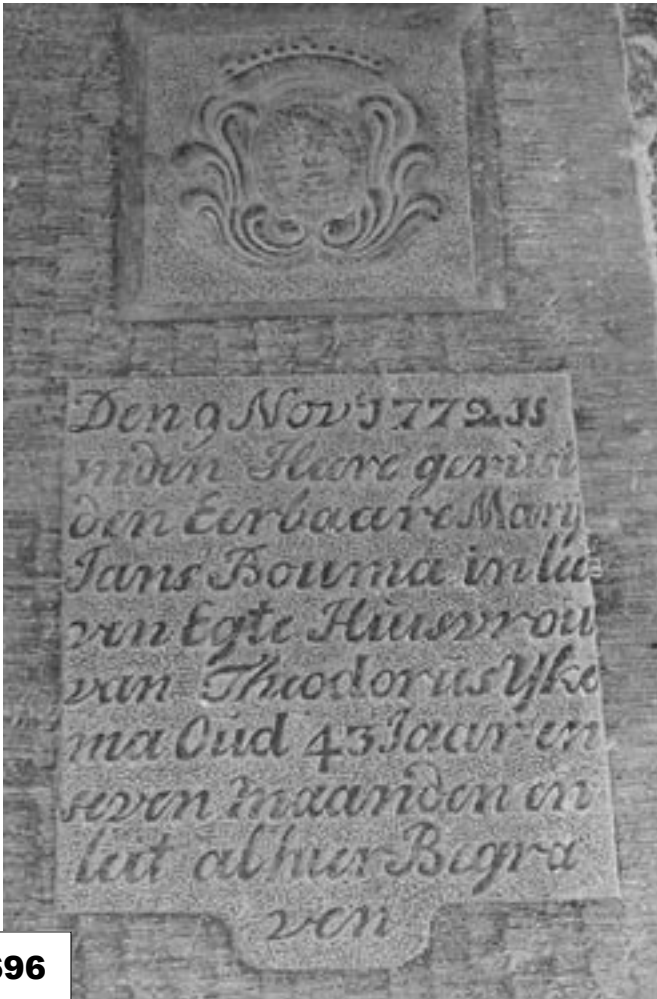 Den 9 Nov 1772 is
inden Heere gerust
den Eerbaare Mary
Jans Bouma in lee
ven Egte Huisvrou
van Theodorus Yke
ma Oud 43 Jaar en
seven maanden en
leit alhier Begra
ven
696